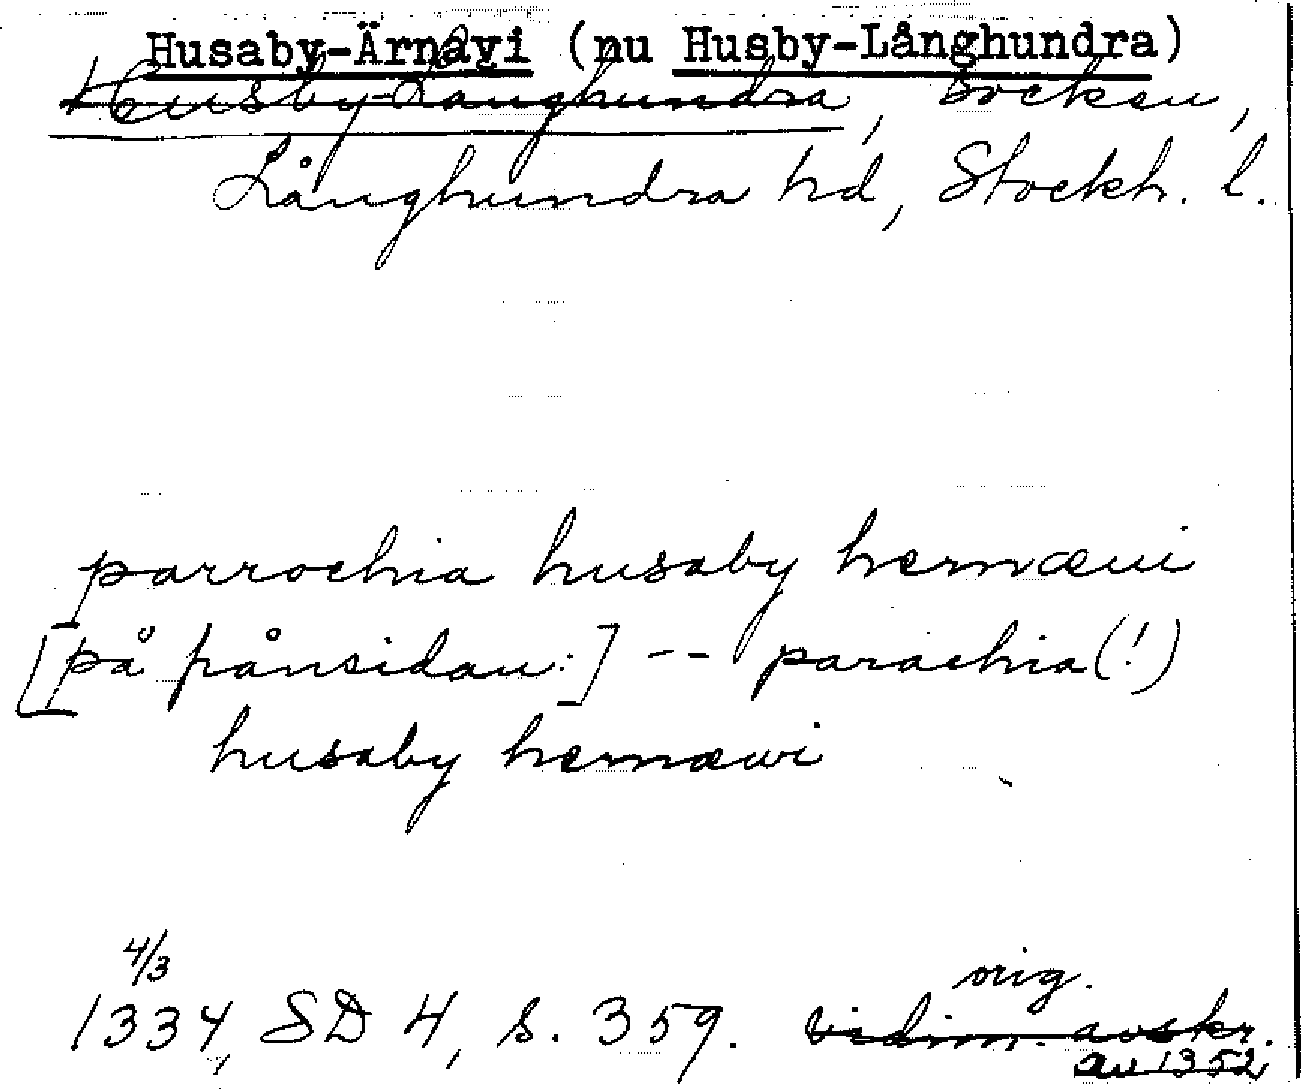 Husaby-Ärnavi (nu Husby-Långhundra)
Husby-Långhundra, socken,
Långhundra hd, Stockh. l.
parrochia husaby hernæui
[på frånsidan:] -- parachia(!)
husaby hernæwi
4/3
orig.
1334, SD 4, s. 359. vidim. avskr.
av 1352